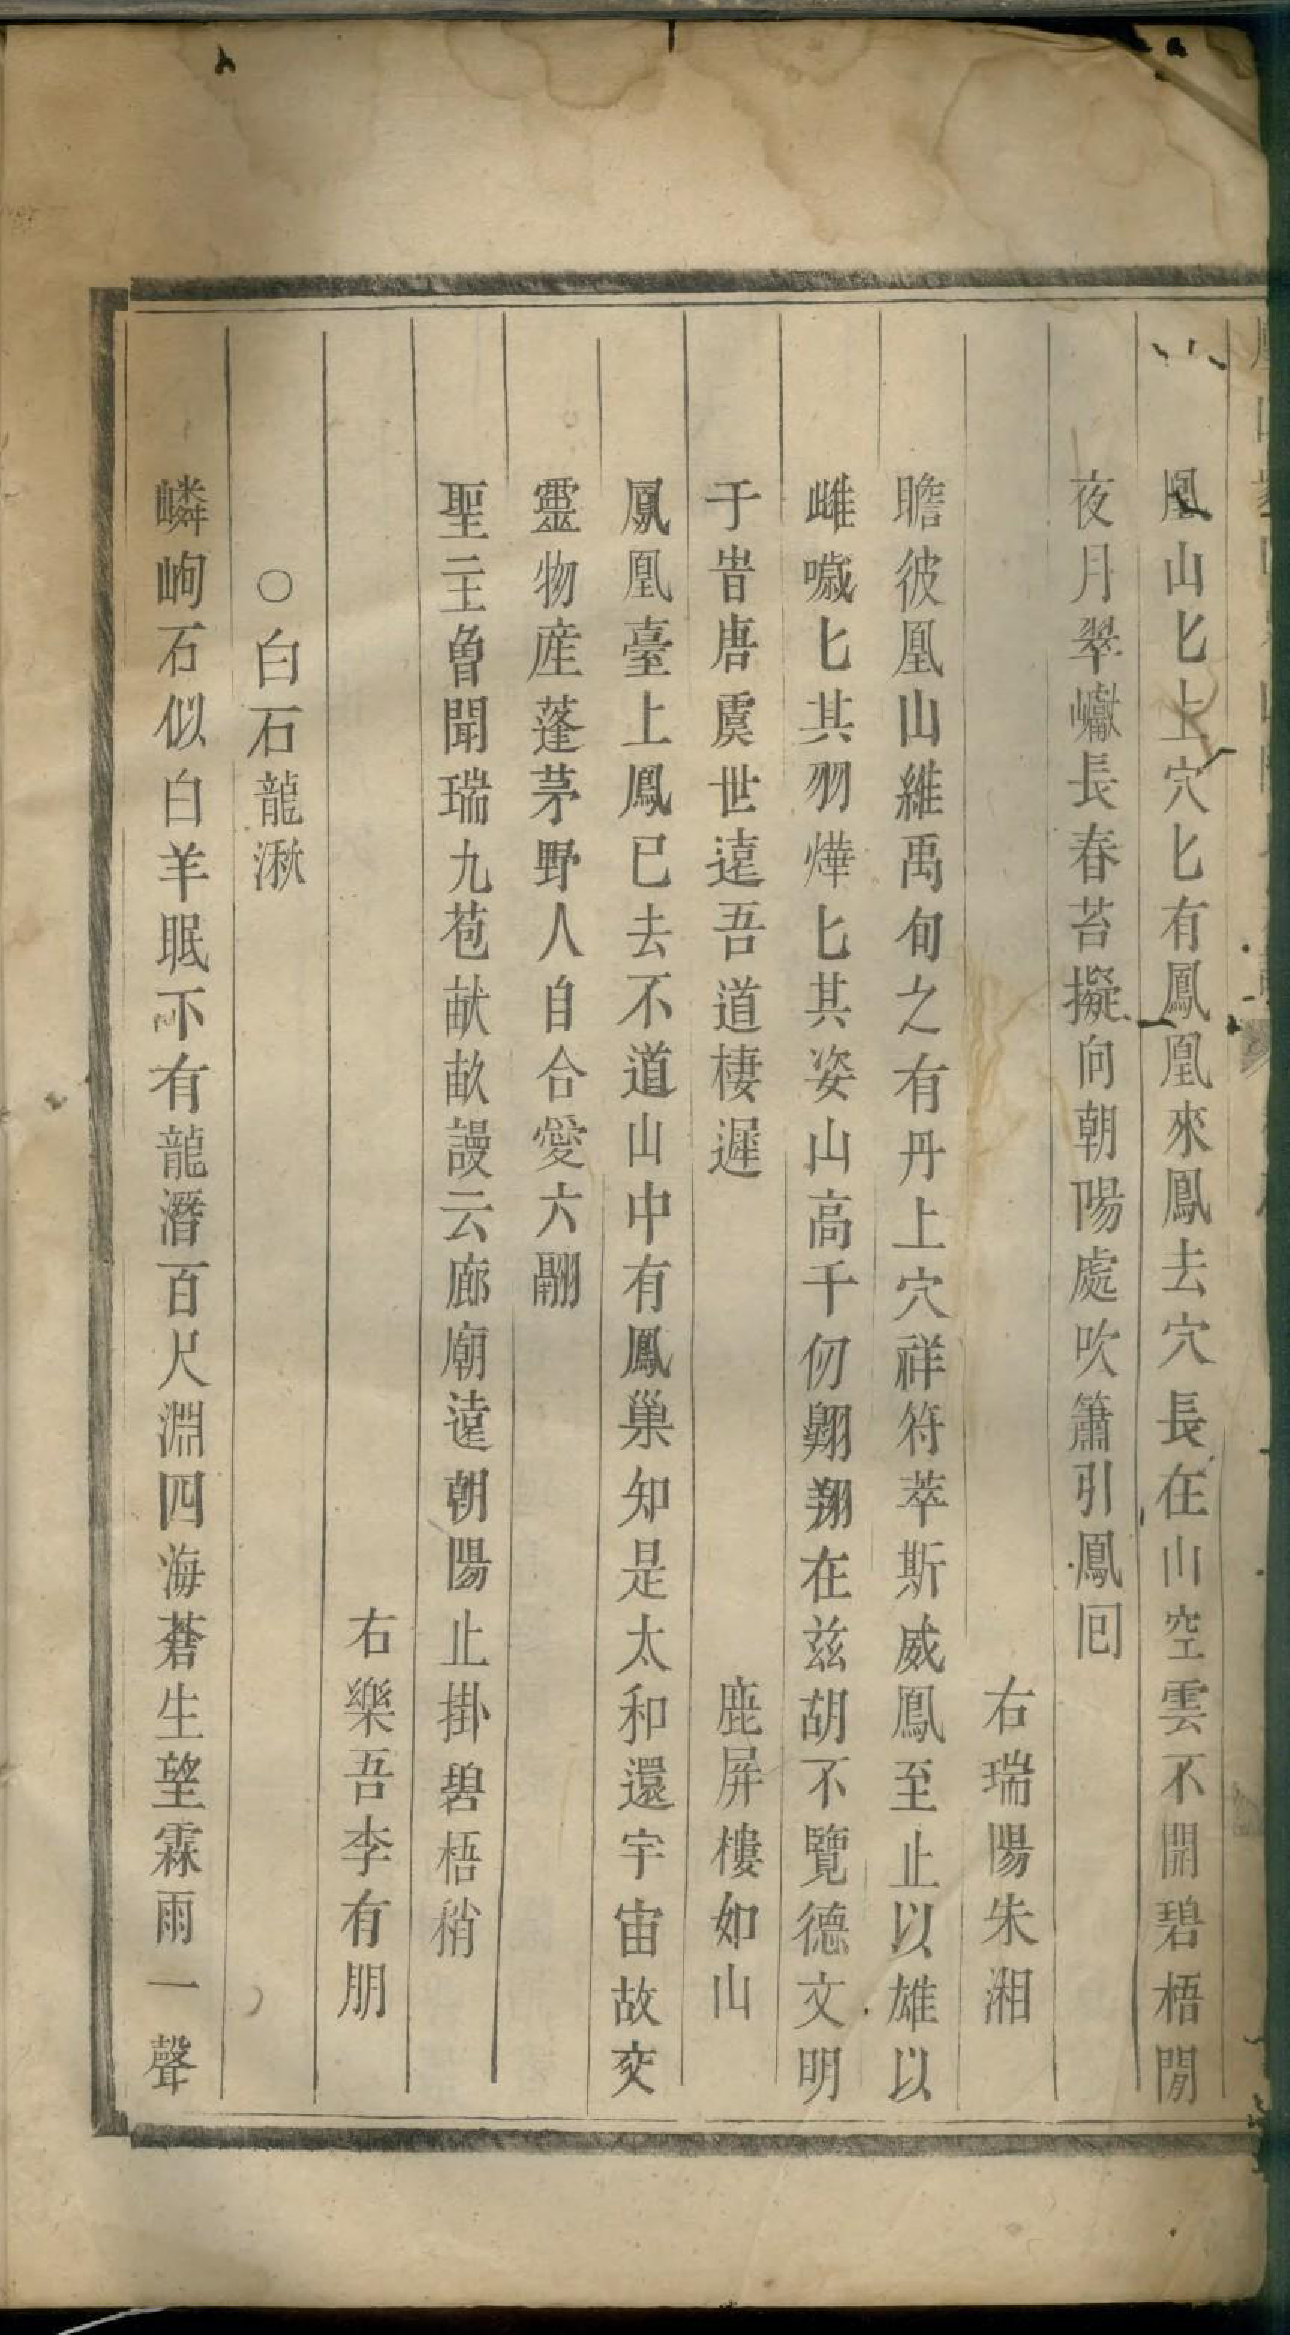 凰山匕上穴匕有鳳凰來鳳去穴長在山空雲不開碧梧閒
夜月翠巘長春苔擬向朝陽處吹簫引鳳囘
右瑞陽朱湘
瞻彼凰山維禹甸之有丹上穴祥符萃斯威鳳至止以雄以
雌噦匕其羽燁匕其姿山高千仞翺翔在兹胡不覽德文明
于昔唐虞世遠吾道棲遲
鹿屏樓如山
鳳凰臺上鳳已去不道山中有鳳巢知是太和還宇宙故交
靈物産蓬茅野人自合愛六翮
聖主曾聞瑞九苞畎畝謾云廊廟遠朝陽止掛碧梧稍
右樂吾李有朋
○白石龍湫
嶙峋石似白羊眠下有龍潛百尺淵四海蒼生望霖雨一聲